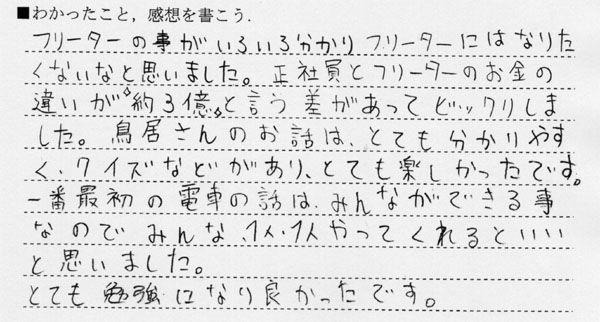 ■わかったこと，感想を書こう.
フリーターの事がいろいろ分かりフリーターにはなりた
くないなと思いました。正社員とフリーターのお金の
違いが"約3億"と言う差があってビックリしま
した。鳥居さんのお話は、とても分かりやす
く、クイズなどがあり、とても楽しかったです。
一番最初の電車の話は、みんなができる事
なのでみんな、1人、1人やってくれるといい
と思いました。
とても勉強になり良かったです。